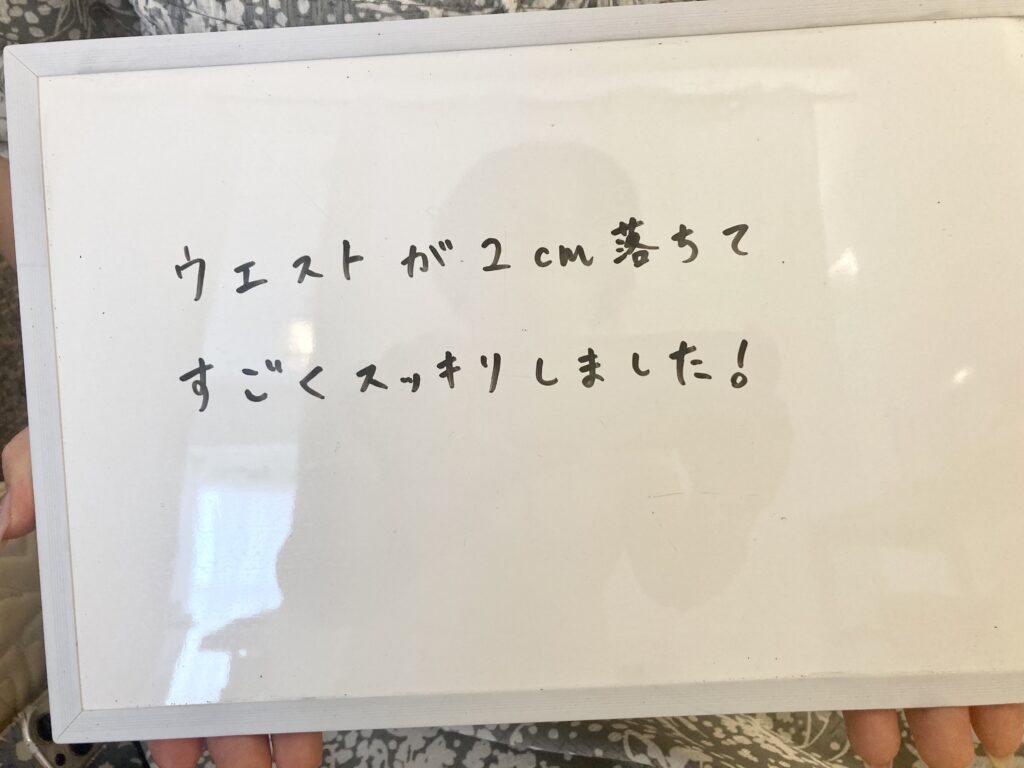 ウエストが2cm落ちて
すごくスッキリしました!